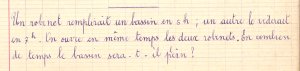 Un robinet remplirait un bassin en 5 h ; un autre le viderait
en 7 h. On ouvre en même temps les deux robinets. En combien
de temps le bassin sera-t-il plein ?